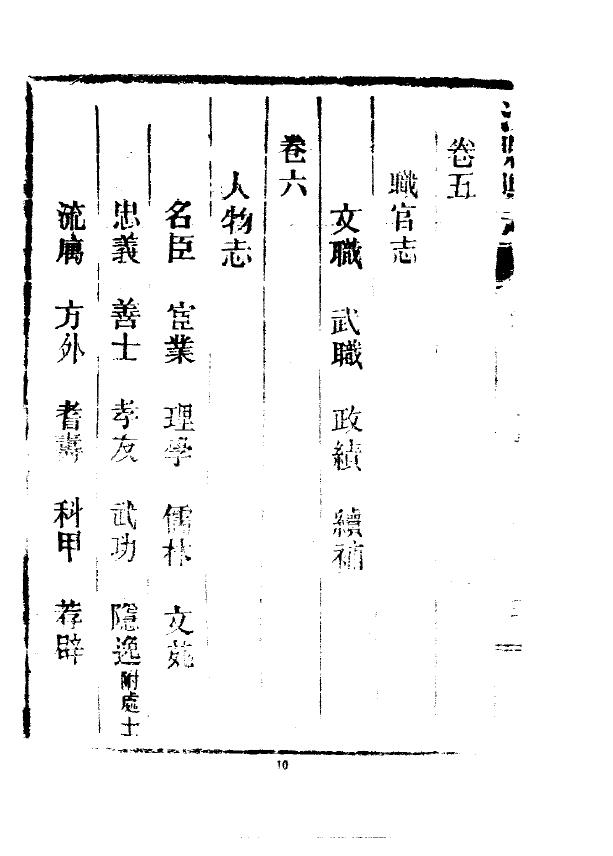 卷五
職官志
文職 武職 政績 續補
卷六
人物志
名臣 宦業 理學 儒林 文苑
忠義 善士 孝友 武功 隱逸附處士
流寓 方外 耆壽 科甲 荐辟
10